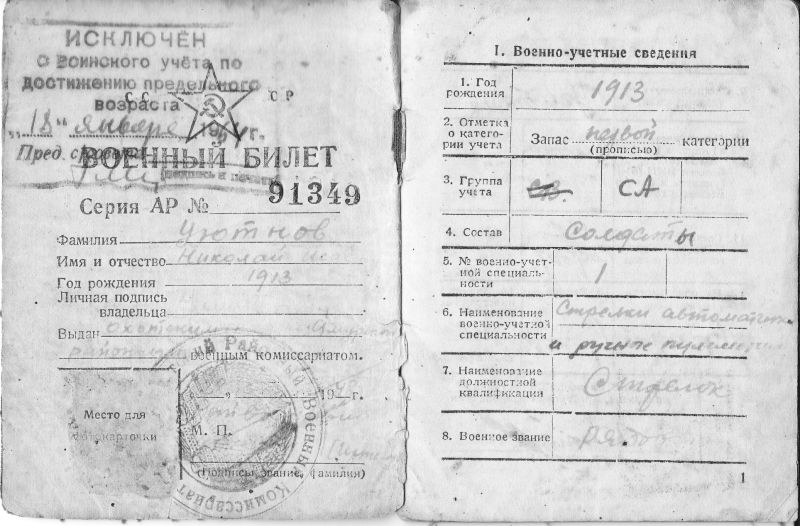 ИСКЛЮЧЁН
с воинского учёта по
достижению предельного
возраста
СССР
„18" января г.
Пред.
ВОЕННЫЙ БИЛЕТ
Серия АР № 91349
Фамилия
Имя и отчество Николай
Год рождения 1913
Личная подпись
владельца
Выдан
военным комиссариатом.
Место для
фотокарточки
„ " 194 г.
М. П.
(Подпись, звание, фамилия)
Районный Военный Комиссариат
I. Военно-учетные сведения
1. Год
рождения 1913
2. Отметка
о катего-
рии учета Запас первой категории
(прописью)
3. Группа
учета СА
4. Состав Солдаты
5. № военно-учет-
ной специаль-
ности 1
6. Наименование
военно-учетной
специальности Стрелки автоматчики
и ручные пулеметчики
7. Наименование
должностной
квалификации Стрелок
8. Военное звание рядов
1